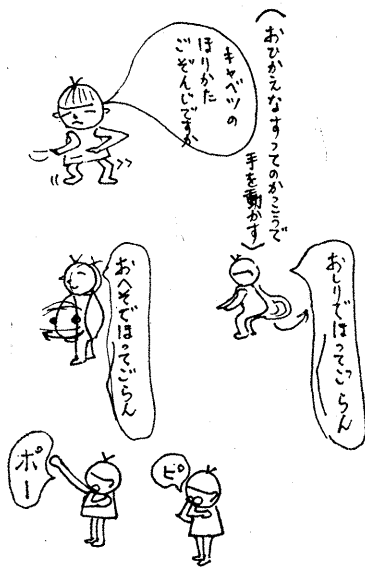 (おひかえなすってのかこうで
手を動かす)
キャベツの
ほりかた
ごぞんじですか
おしりでほってごらん
おへそでほってごらん
ピ
ポー